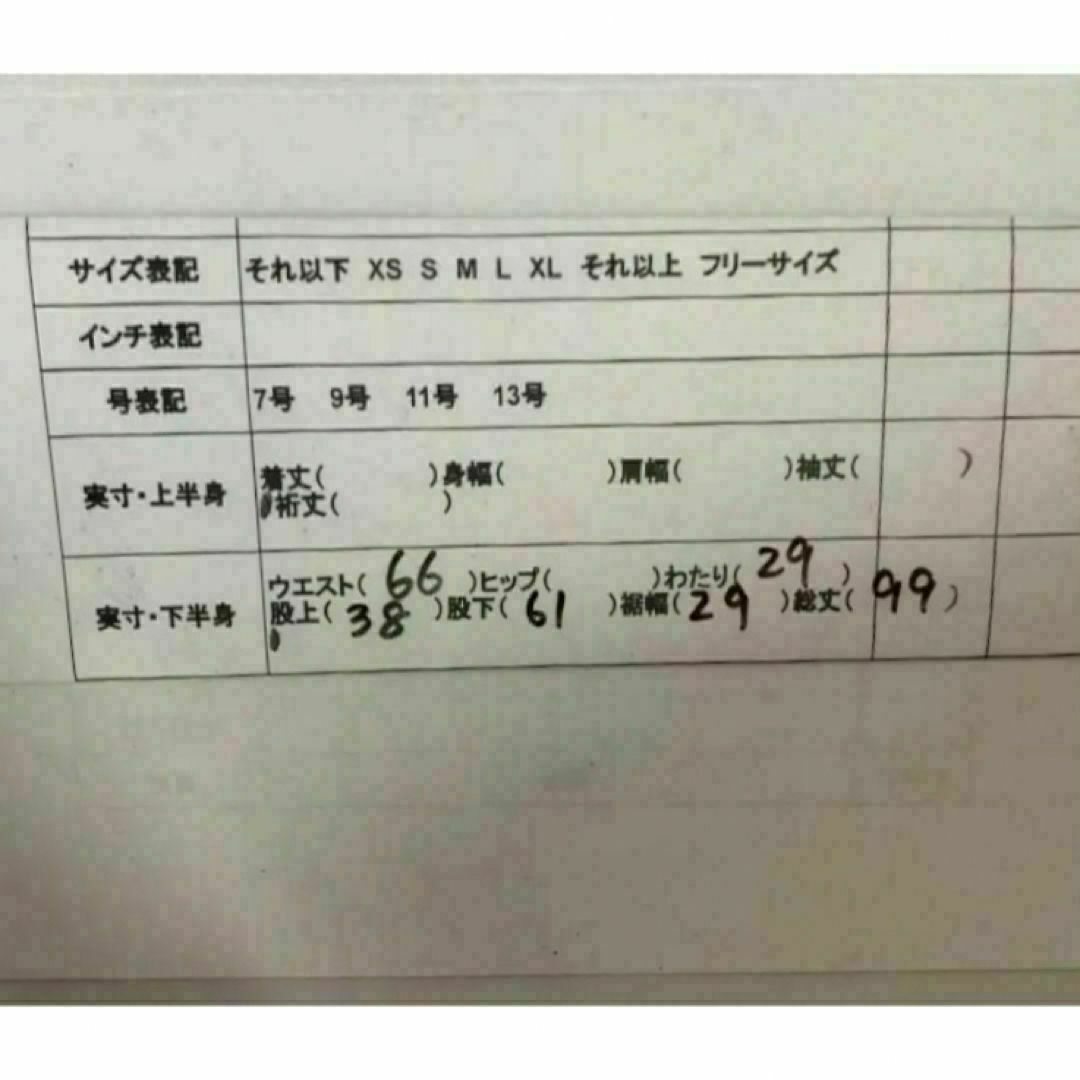 サイズ表記 それ以下 XS S M L XL それ以上 フリーサイズ
インチ表記
号表記 7号 9号 11号 13号
実寸・上半身 着丈( )身幅( )肩幅( )袖丈( )
裄丈( )
実寸・下半身 ウエスト( 66 )ヒップ( )わたり( 29 )
股上( 38 )股下( 61 )裾幅( 29 )総丈( 99 )